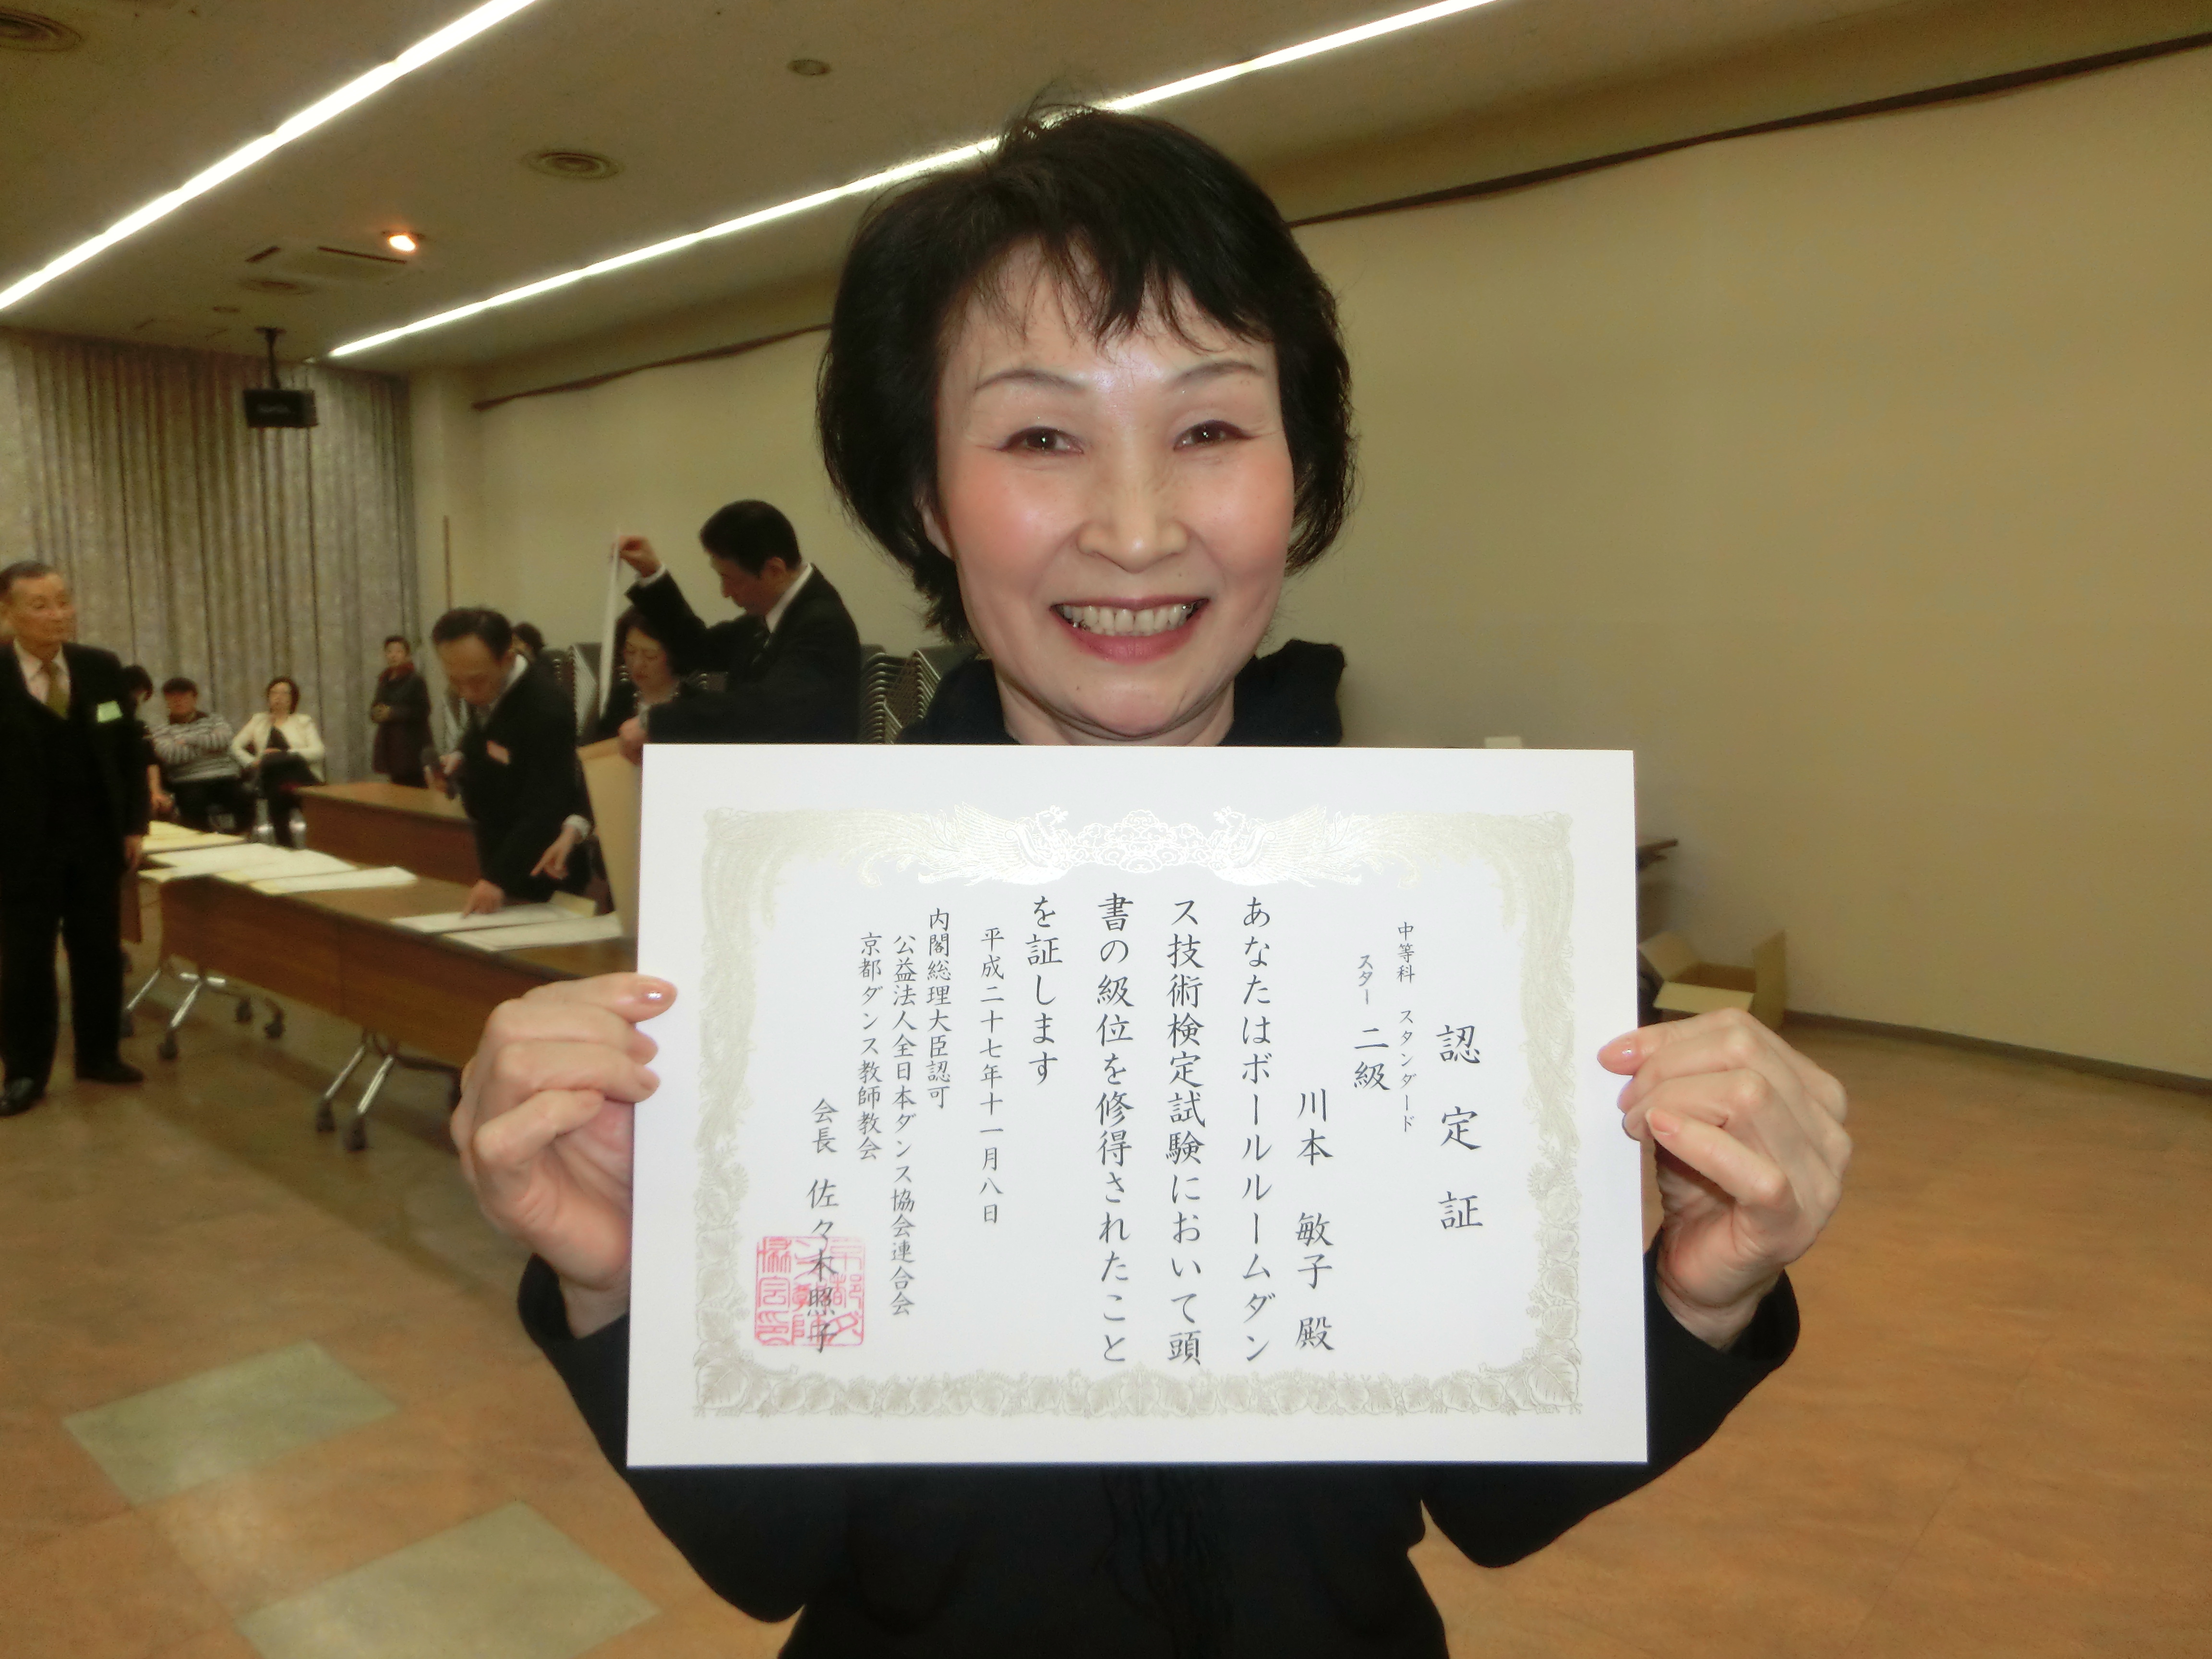 認定証
中等科 スタンダード
スター 二級
川本 敏子 殿
あなたはボールルームダン
ス技術検定試験において頭
書の級位を修得されたこと
を証します
平成二十七年十一月八日
内閣総理大臣認可
公益法人全日本ダンス協会連合会
京都ダンス教師教会
会長 佐々木照子